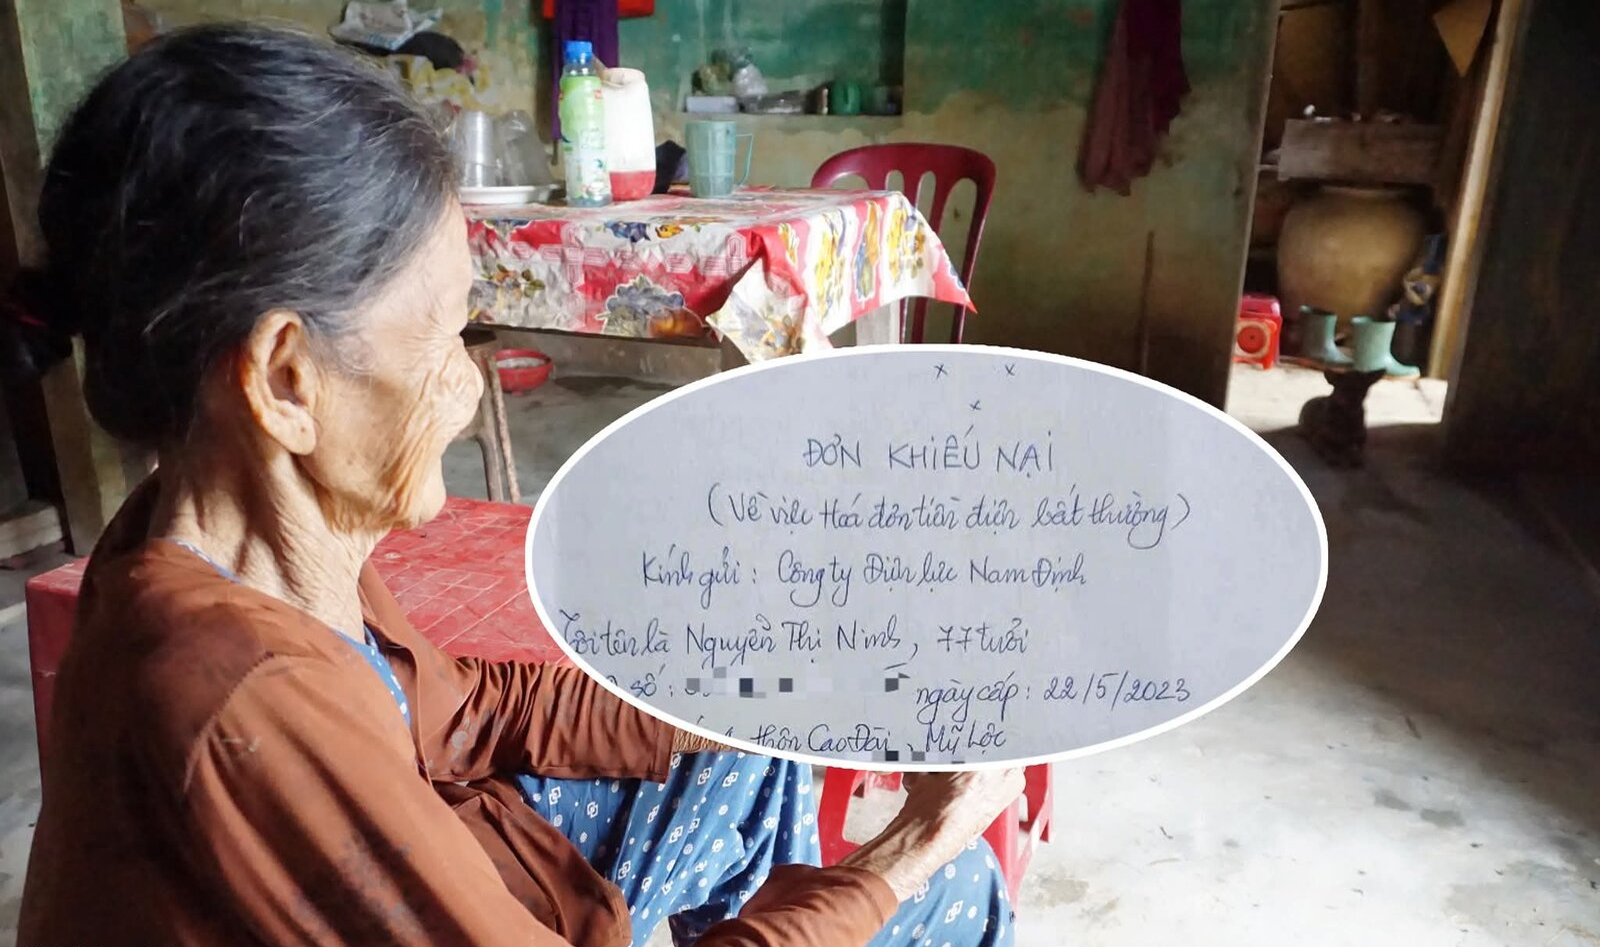 ĐƠN KHIẾU NẠI
(Về việc Hoá đơn tiền điện bất thường)
Kính gửi : Công ty Điện lực Nam Định
Tôi tên là Nguyễn Thị Ninh, 77 tuổi
số : ngày cấp : 22/5/2023
thôn Cao Đài, Mỹ Lộc